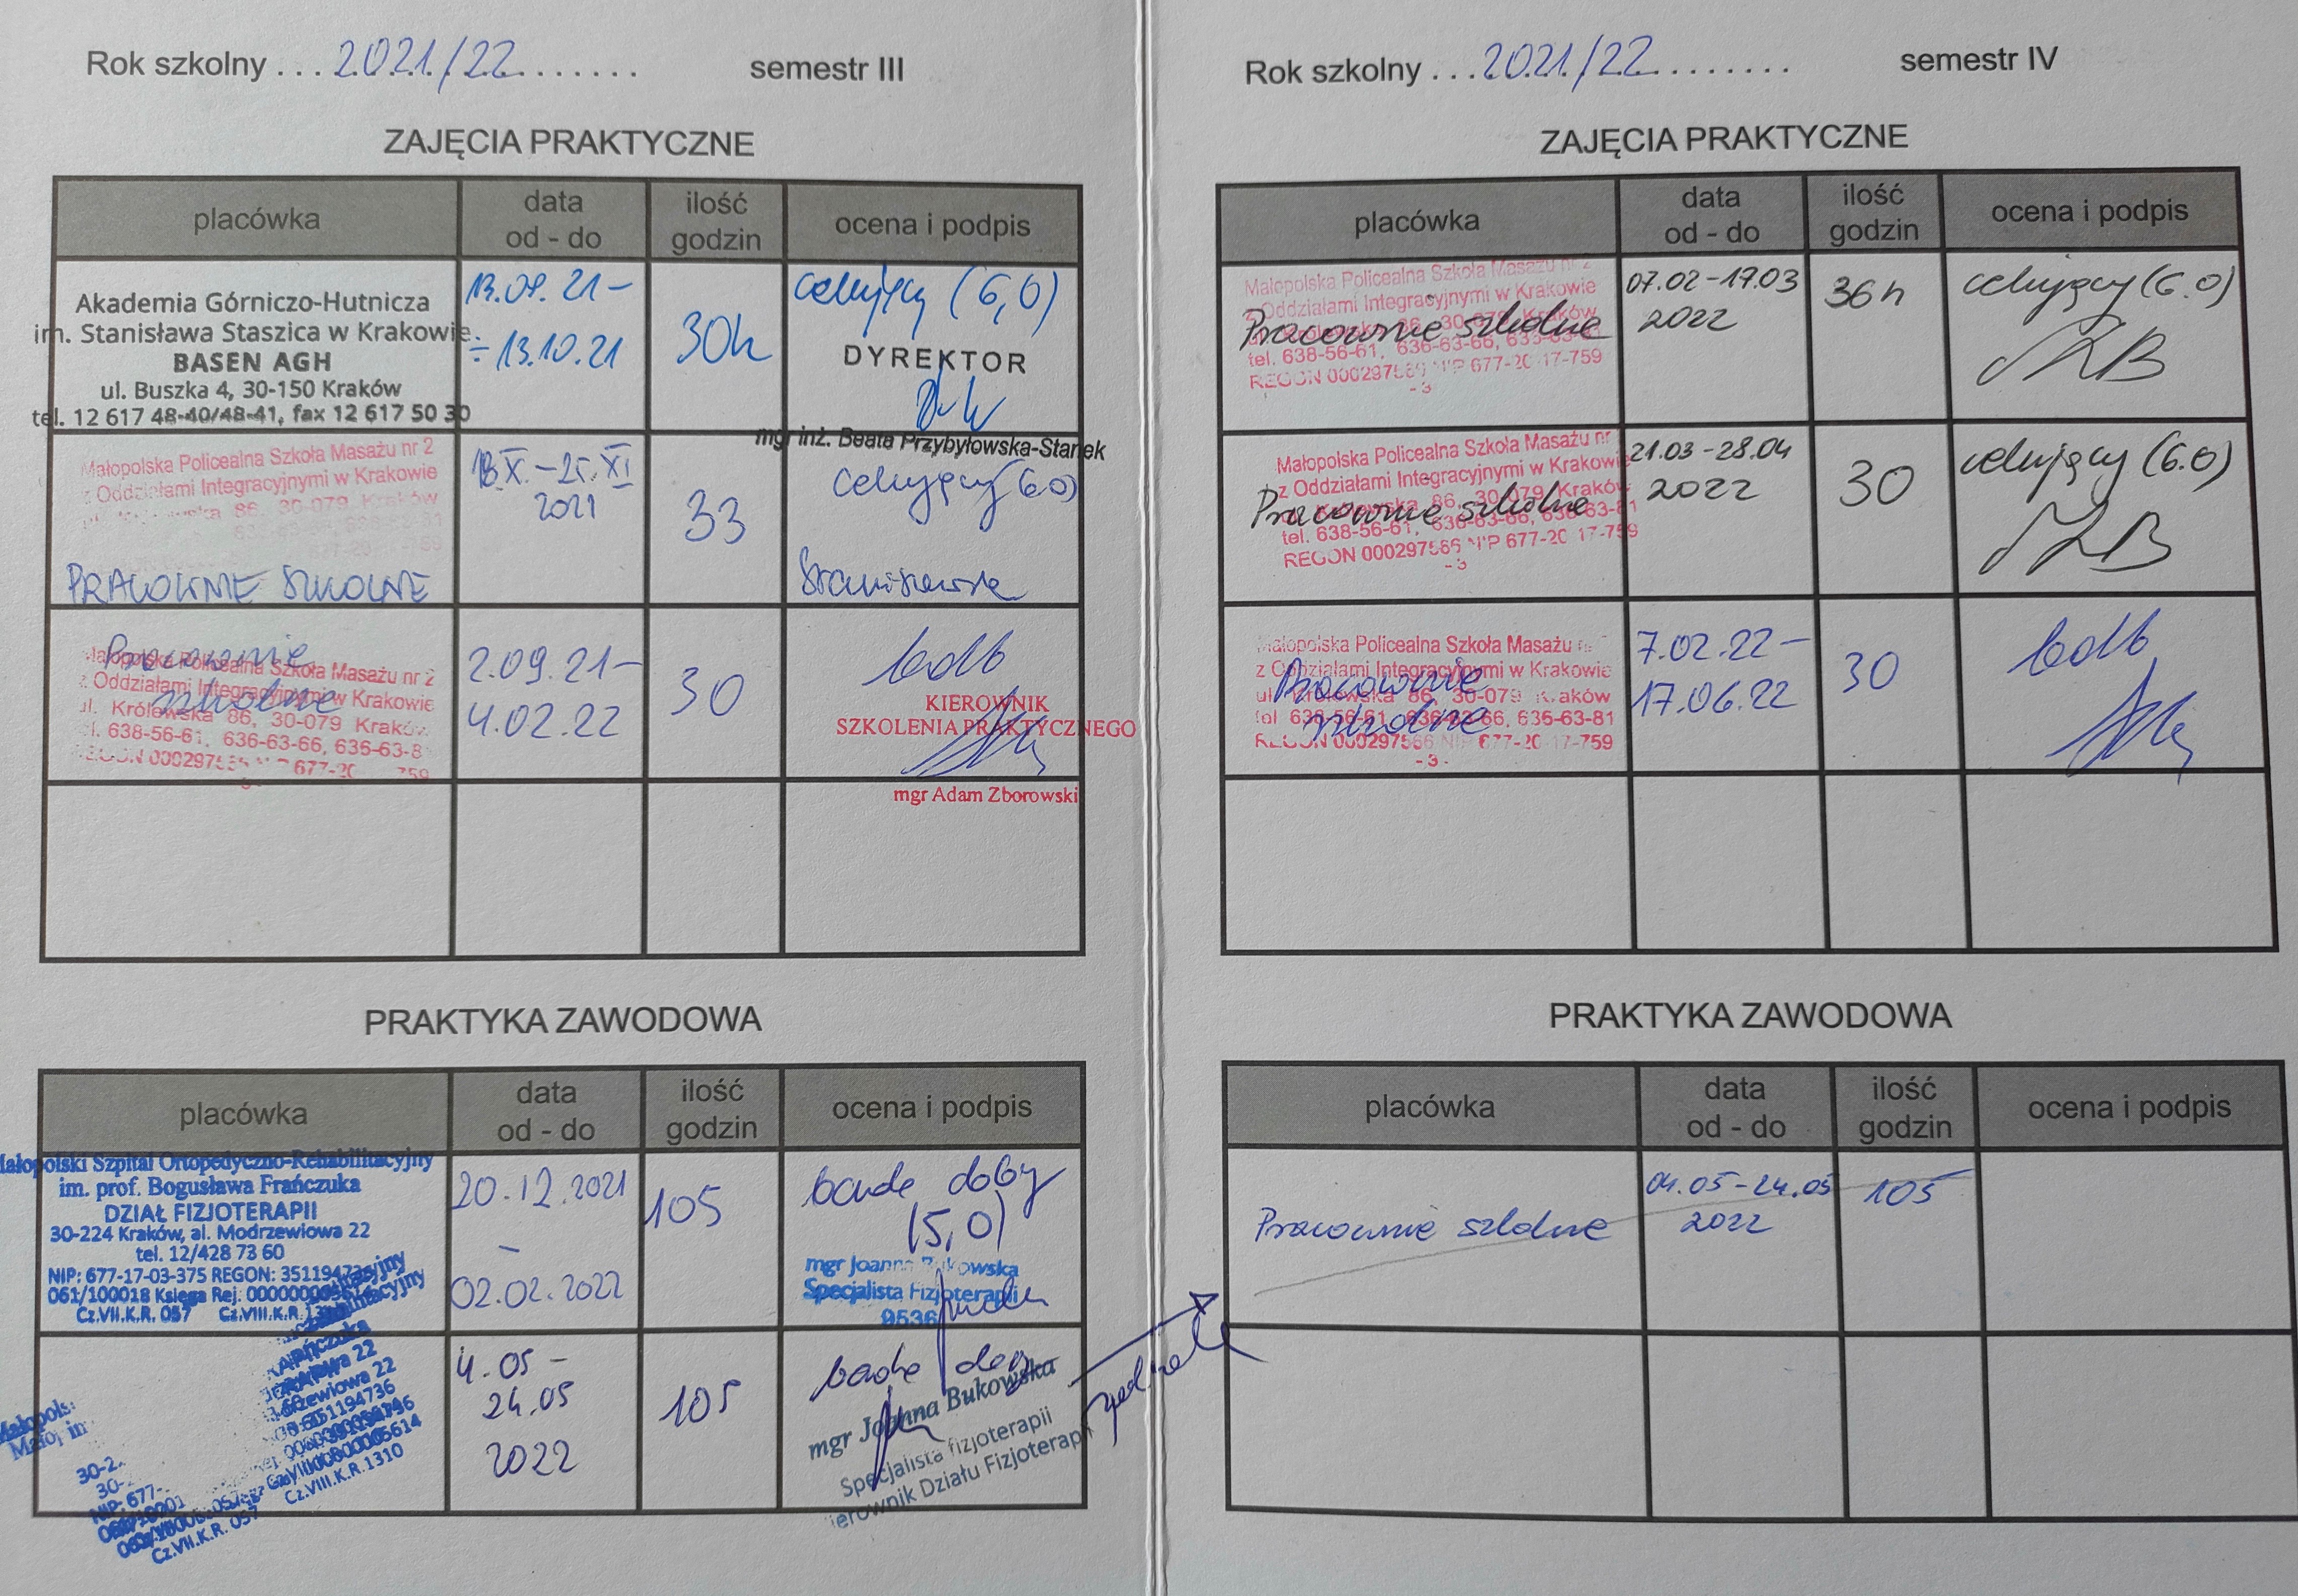 Rok szkolny ... 2021/22 ....... semestr III
ZAJĘCIA PRAKTYCZNE
placówka
data
od - do
ilość
godzin
ocena i podpis
Akademia Górniczo-Hutnicza
im. Stanisława Staszica w Krakowie
BASEN AGH
ul. Buszka 4, 30-150 Kraków
tel. 12 617 48-40/48-41, fax 12 617 50 30
13.09.21 -
÷ 13.10.21
30h
celujący (6,0)
DYREKTOR
mgr inż. Beata Przybyłowska-Stanek
Małopolska Policealna Szkoła Masażu nr 2
z Oddziałami Integracyjnymi w Krakowie
86, 30-079 Kraków
PRACOWNIE SZKOLNE
18.X - 25.XI
2021
33
celujący (6.0)
Pracownie
szkolne
Małopolska Policealna Szkoła Masażu nr 2
z Oddziałami Integracyjnymi w Krakowie
ul. Królewska 86, 30-079 Kraków
tel. 638-56-61, 636-63-66, 636-63-8
2.09.21 -
4.02.22
30
bdb
KIEROWNIK
SZKOLENIA PRAKTYCZNEGO
mgr Adam Zborowski
PRAKTYKA ZAWODOWA
placówka
data
od - do
ilość
godzin
ocena i podpis
Małopolski Szpital Ortopedyczno-Rehabilitacyjny
im. prof. Bogusława Frańczuka
DZIAŁ FIZJOTERAPII
30-224 Kraków, al. Modrzewiowa 22
tel. 12/428 73 60
NIP: 677-17-03-375 REGON: 351194736
061/100018 Księga Rej: 000000005614
Cz.VII.K.R. 057 Cz.VIII.K.R.
20.12.2021
-
02.02.2022
105
bardzo dobry
(5,0)
mgr Joanna Bukowska
Specjalista Fizjoterapii
9536
Cz.VII.K.R. 057 Cz.VIII.K.R.1310
4.05 -
24.05
2022
105
mgr Joanna Bukowska
Specjalista fizjoterapii
Kierownik Działu Fizjoterapii
Rok szkolny ... 2021/22 ........ semestr IV
ZAJĘCIA PRAKTYCZNE
placówka
data
od - do
ilość
godzin
ocena i podpis
Małopolska Policealna Szkoła Masażu nr 2
z Oddziałami Integracyjnymi w Krakowie
Pracownie szkolne
tel. 638-56-61, 636-63-66,
REGON 000297566 NIP 677-20-17-759
- 3 -
07.02 - 17.03
2022
36h
celujący (6.0)
Małopolska Policealna Szkoła Masażu nr
z Oddziałami Integracyjnymi w Krakowie
86, 30-079 Kraków
Pracownie szkolne
tel. 638-56-61, 636-63-66, 636-63-81
REGON 000297566 NIP 677-20-17-759
- 3
21.03 - 28.04
2022
30
celujący (6.0)
Małopolska Policealna Szkoła Masażu nr
z Oddziałami Integracyjnymi w Krakowie
Pracownie
ul. Królewska 86, 30-079 Kraków
szkolne
tel. 638-56-61, 636-63-66, 636-63-81
REGON 000297566 NIP 677-20-17-759
- 3 -
7.02.22 -
17.06.22
30
bdb
PRAKTYKA ZAWODOWA
placówka
data
od - do
ilość
godzin
ocena i podpis
Pracownie szkolne
04.05 - 24.05
2022
105